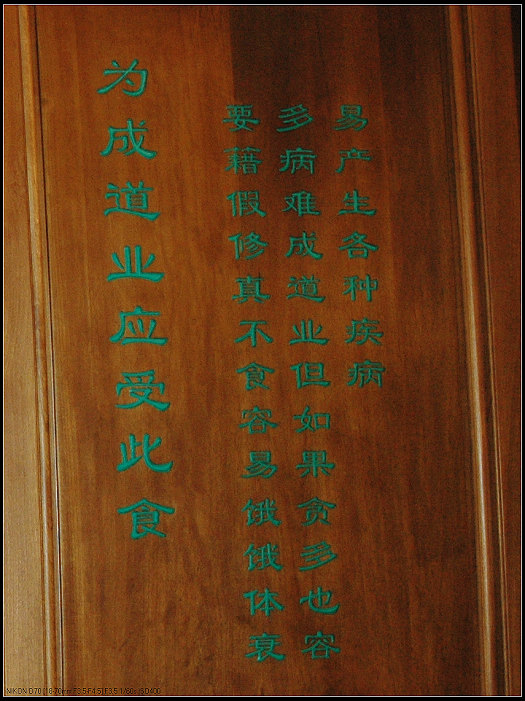 为成道业应受此食
要藉假修真不食容易饿饿体衰
多病难成道业但如果贪多也容
易产生各种疾病
NIKON D70